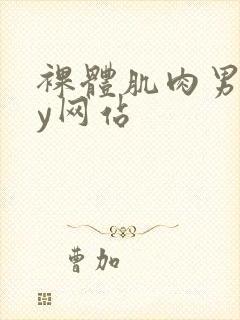 裸體肌肉男
y网佔
曹加